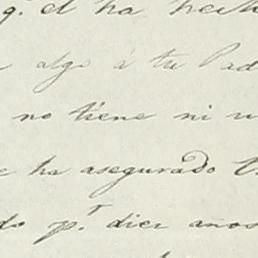 q.e el ha hech
algo á tu Pad
no tiene ni u
ha asegurado
do p.r diez años